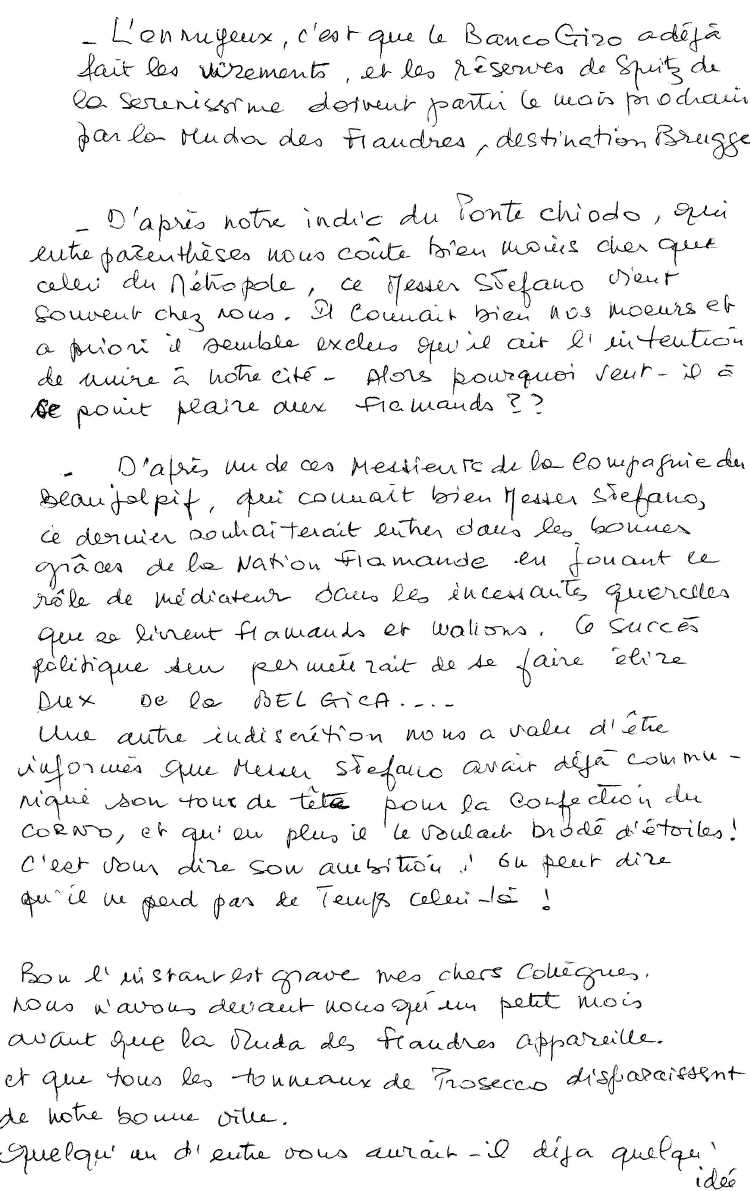 - L'ennuyeux, c'est que le Banco Giro a déjà
fait les virements, et les réserves de Spritz de
la Serenissime doivent partir le mois prochain
par la Muda des Flandres, destination Brugge
- D'après notre indic du Ponte chiodo, qui
entre parenthèses nous coûte bien moins cher que
celui du Métropole, ce Messer Stefano vient
souvent chez nous. Il connait bien nos moeurs et
a priori il semble exclus qu'il ait l'intention
de nuire à notre cité - Alors pourquoi veut-il à
ce point plaire aux flamands ??
- D'après un de ces Messieurs de la Compagnie du
Beaujolpif, qui connaît bien Messer Stefano,
ce dernier souhaiterait entrer dans les bonnes
grâces de la Nation flamande en jouant le
rôle de médiateur dans les incessantes querelles
que se livrent flamands et wallons. Ce succès
politique lui permettrait de se faire élire
Dux de la BELGICA....
Une autre indiscrétion nous a valu d'être
informés que Messer Stefano avait déjà commu-
niqué son tour de tête pour la confection du
CORNO, et qu'en plus il le voulait brodé d'étoiles!
C'est vous dire son ambition ! On peut dire
qu'il ne perd pas le Temps celui-là !
Bon l'instant est grave mes chers Collègues.
nous n'avons devant nous qu'un petit mois
avant que la Muda des flandres appareille.
et que tous les tonneaux de Prosecco disparaissent
de notre bonne ville.
Quelqu'un d'entre vous aurait-il déja quelqu'
idée